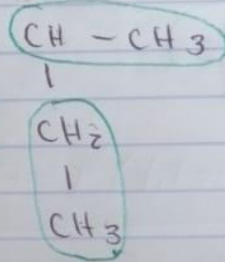 CH - CH3
|
CH2
|
CH3